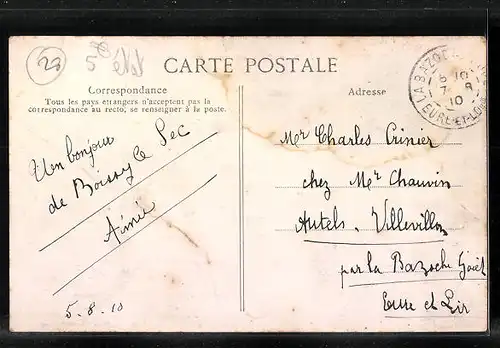 28
5
état
CARTE POSTALE
Correspondance
Tous les pays étrangers n'acceptent pas la
correspondance au recto, se renseigner à la poste.
Adresse
LA BAZOCHE
6 10
7 - 8
10
EURE-ET-LOIR
Un bonjour
de Boissy le Sec
Aimée
5.8.10
Mr Charles Crinier
chez Mr Chauvin
Autels. Villevillon
par la Bazoche Goüet
Eure et Loir